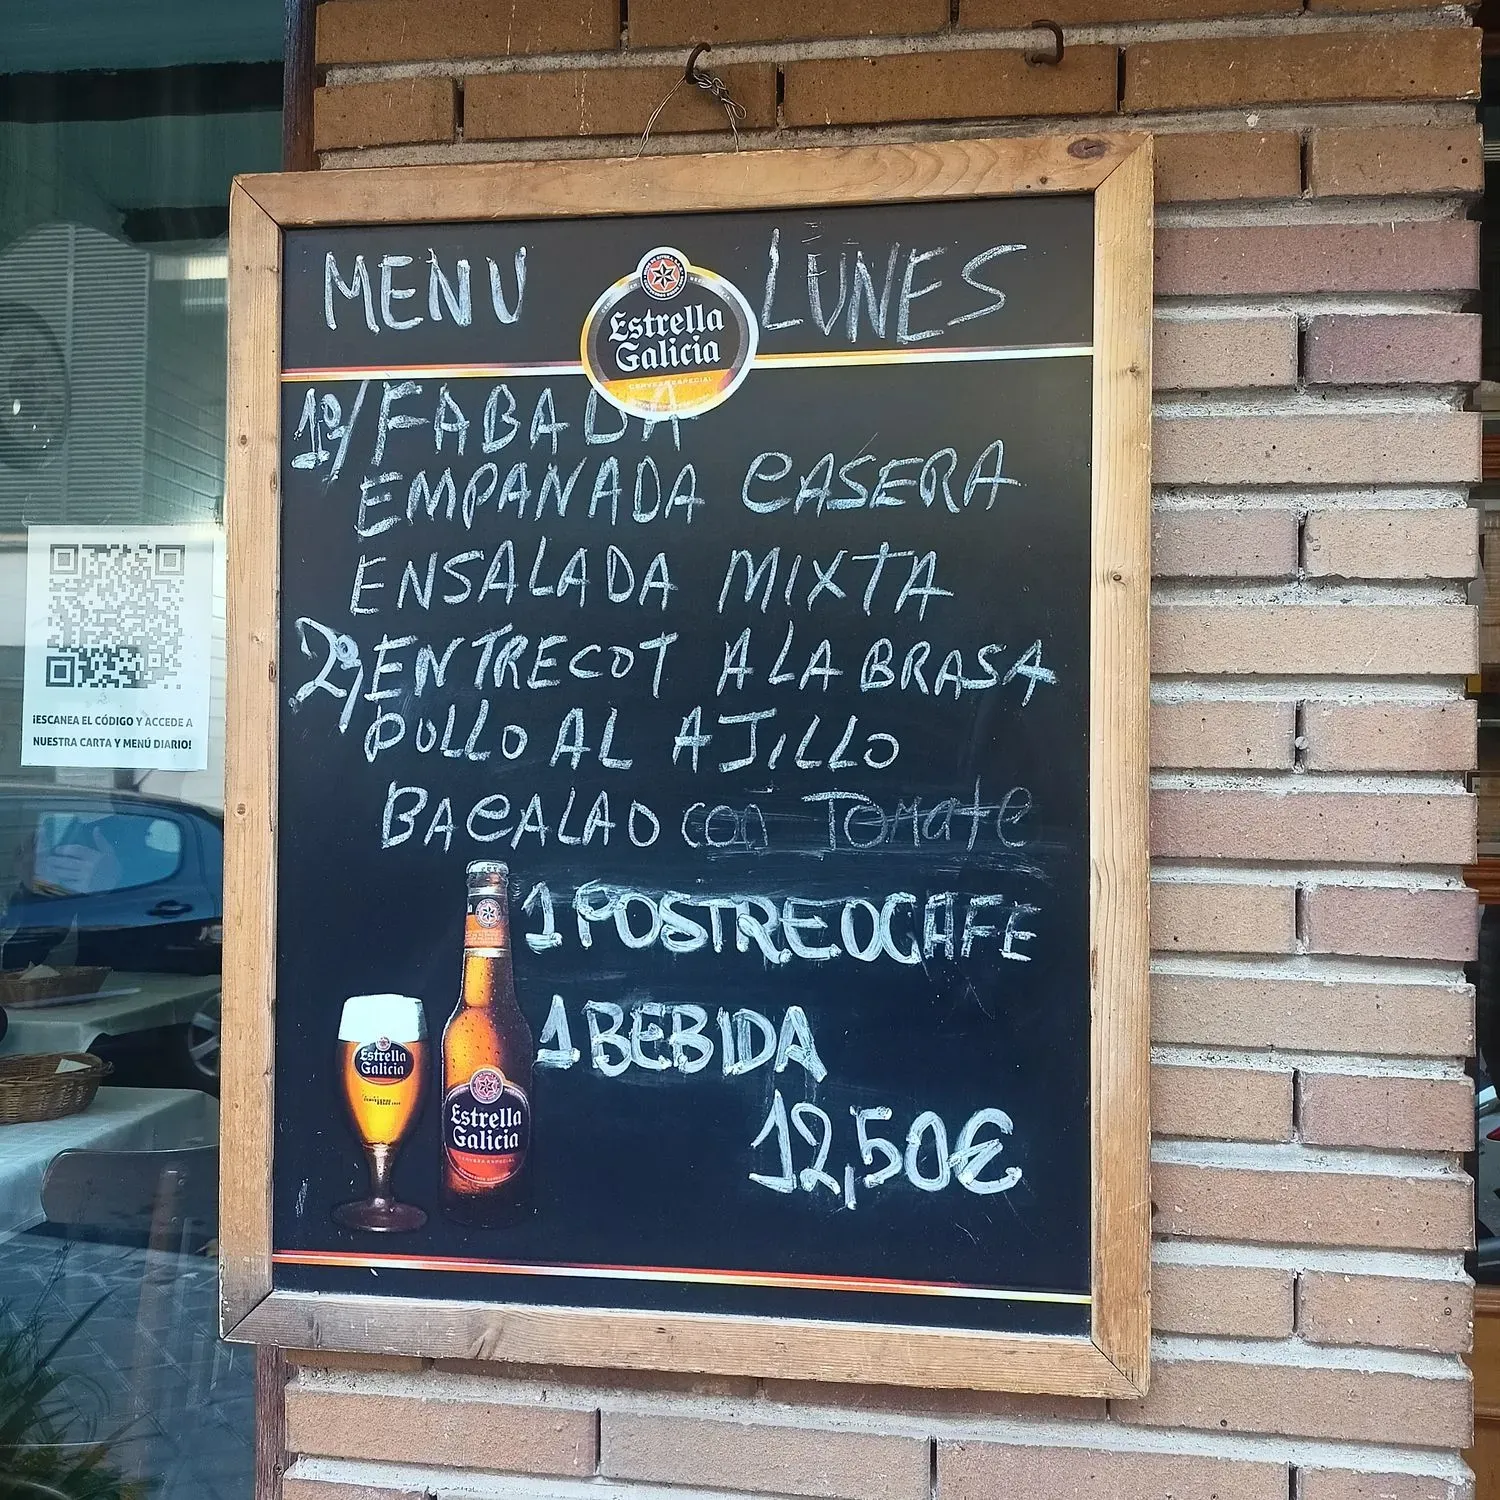 MENU LUNES
Estrella
Galicia
CERVEZA ESPECIAL
1º/ FABADA
EMPANADA CASERA
ENSALADA MIXTA
2º/ ENTRECOT A LA BRASA
POLLO AL AJILLO
BACALAO con Tomate
1 POSTRE O CAFE
1 BEBIDA
12,50€
Estrella
Galicia
Estrella
Galicia
CERVEZA ESPECIAL
¡ESCANEA EL CÓDIGO Y ACCEDE A
NUESTRA CARTA Y MENÚ DIARIO!